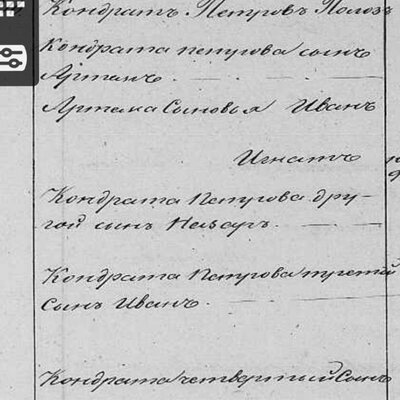 Кондратъ Петровъ Полозъ
Кондрата петрова сынъ
Артемъ.
Артема Сыновья Иванъ
Игнатъ
Кондрата Петрова дру-
гой сынъ Назаръ.
Кондрата Петрова третій
Сынъ Иванъ.
Кондрата четвертый Сынъ